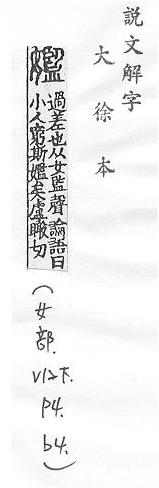 説文解字
大徐本
㜮 過差也从女監聲論語曰
小人窮斯㜮矣盧瞰切
(女部.
V12下.
P4.
b4.)